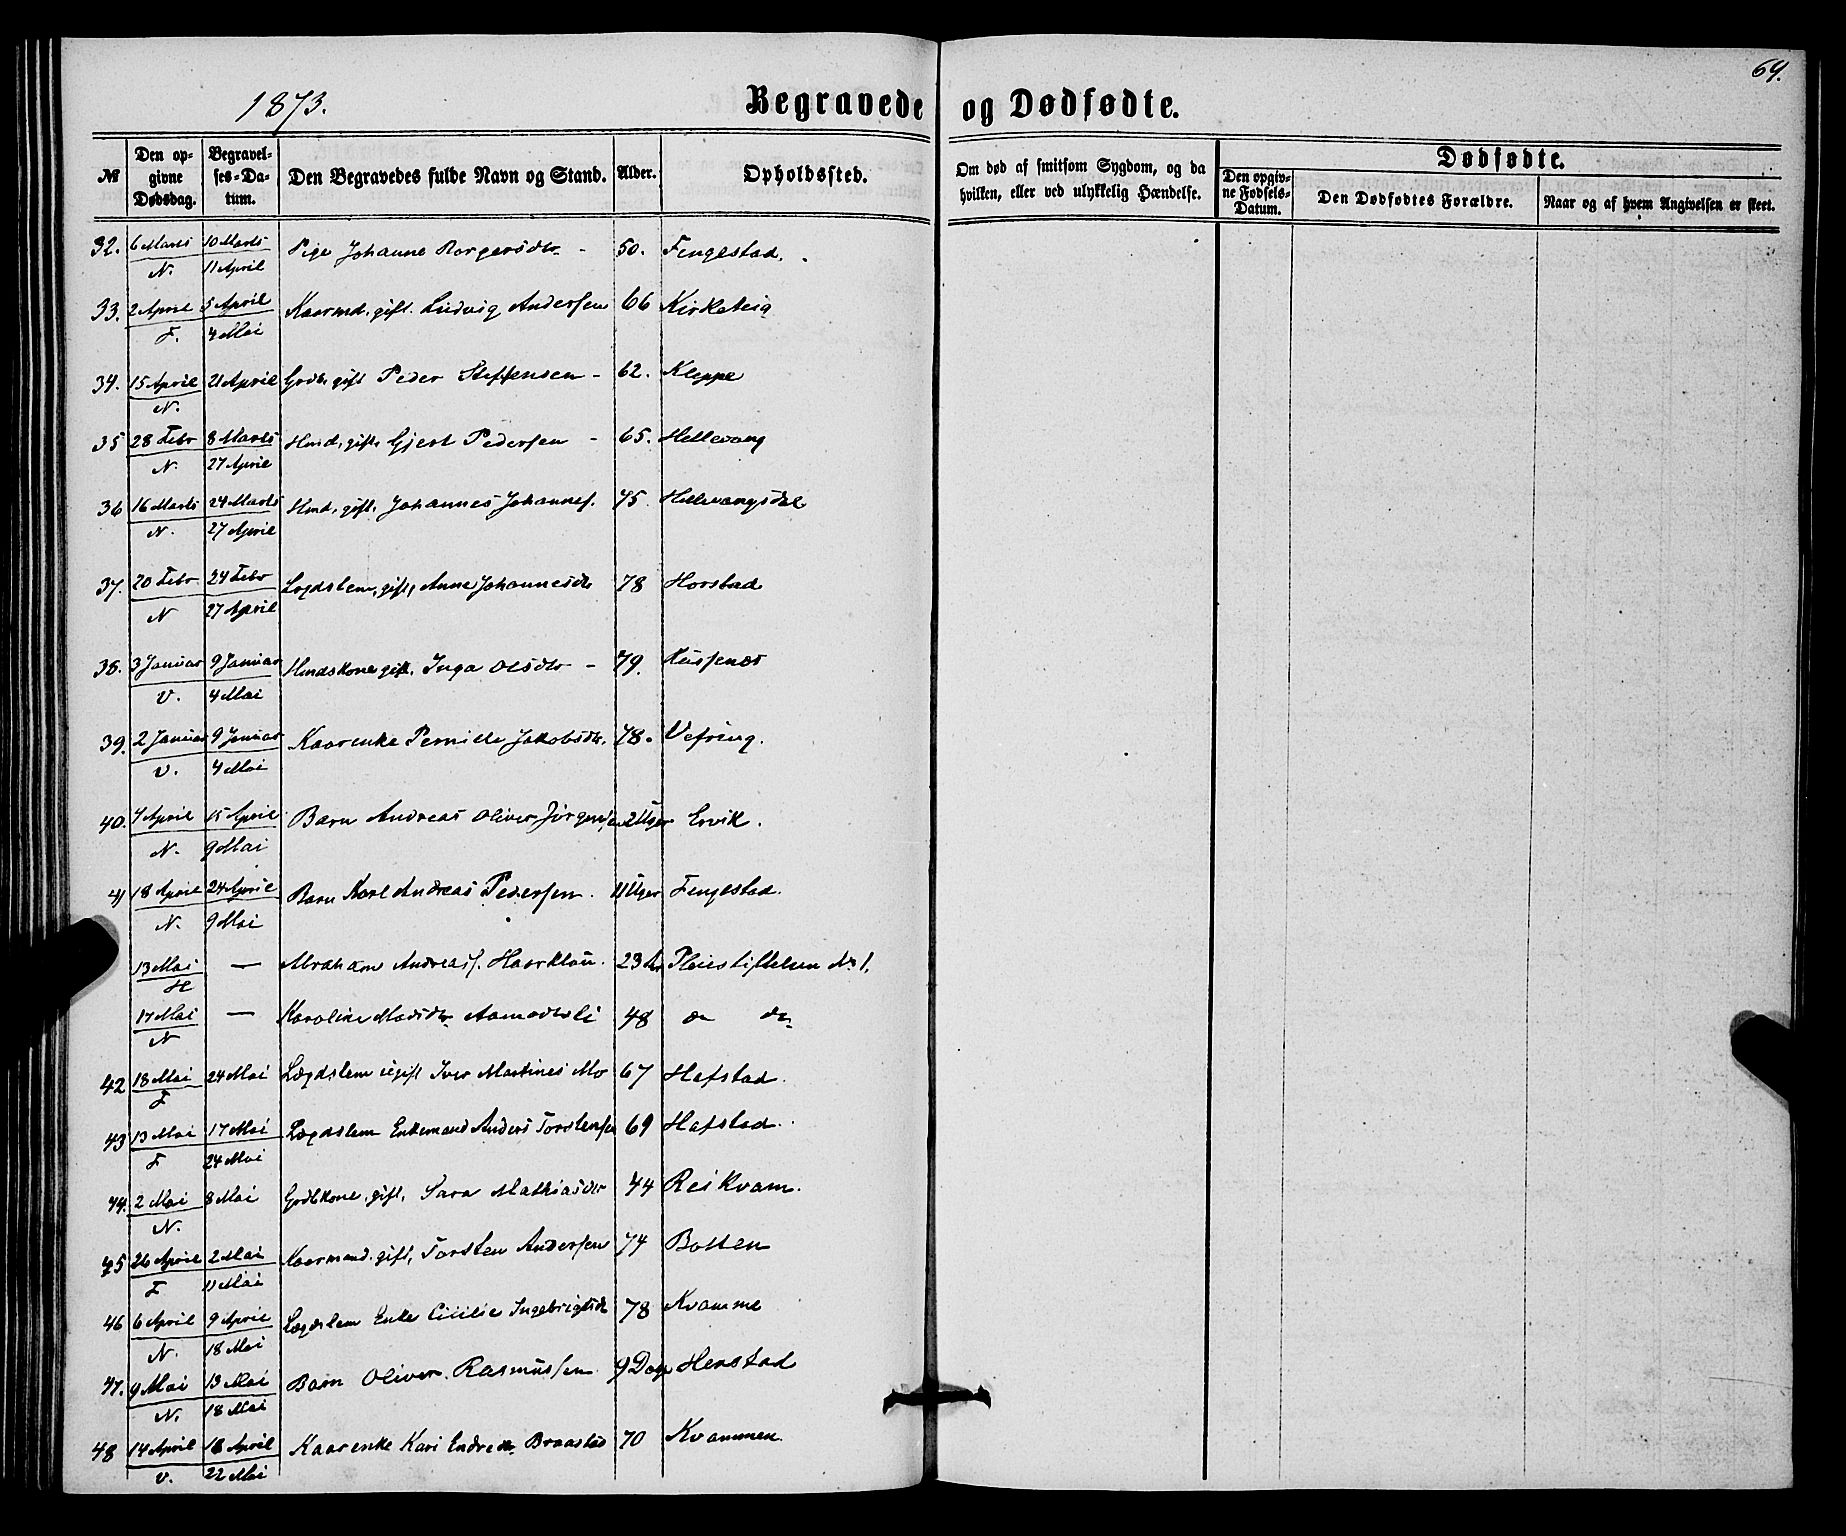 64.
1873.
Begravede og Dødfødte.
№
Den op-
givne
Dødsdag.
Begravel-
ses-Da-
tum.
Den Begravedes fulde Navn og Stand.
Alder.
Opholdssted.
Om død af smitsom Sygdom, og da
hvilken, eller ved ulykkelig Hændelse.
Dødfødte.
Den opgiv-
ne Fødsels-
Datum.
Den Dødfødtes Forældre.
Naar og af hvem Angivelsen er skeet.
32. 6 Marts 10 Marts Pige Johanne Borgersdtr - 50. Fengestad.
N. 11 April
33. 2 April 5 April Kaarmd. gift. Ludvig Andersen 66 Kirketeig
F. 4 Mai
34. 15 April 21 April Grdbr. gift Peder Steffensen - 62. Kleppe
N.
35 28 Febr 8 Marts Hmd, gift, Gjert Pedersen - 65. Hellevang
N. 27 April
36 16 Marts 24 Marts Hmd, gift, Johannes Johannes. 75. Hellevangsdal
N. 27 April
37. 20 Febr 24 Febr Lægdslem, gift, Anne Johannesdtr 78 Horstad
N 27 April
38. 3 Januar 9 Januar Hmdskone gift. Inga Olsdtr - 79.
V. 4 Mai
39. 2 Januar 9 Januar Kaarenke Pernille Jakobsdtr. 78. Vefring.
V. 4 Mai
40. 4 April 15 April Barn Andreas Oliver Jørgensen 2 Uger Ervik.
N. 9 Mai
41 18 April 24 April Barn Karl Andreas Pedersen. 11 Uger Fengestad.
N. 9 Mai
13 Mai — Abraham Andreas. Haarklau. 23 Pleiestiftelsen No 1.
H
17 Mai — Karoline Madsdtr Aamodtsli 48 do do
N
42 18 Mai 24 Mai Lægdslem ugift Iver Martines Mo 67 Hafstad.
F
43 13 Mai 17 Mai Lægdslem Enkemand Anders Torstensen 69 Hafstad.
F 24 Mai
44. 2 Mai 8 Mai Grdbkone, gift, Sara Mathiasdtr 44 Reikvam.
N.
45 26 April 2 Mai Kaarmand. gift, Torsten Andersen 74 Botten
F 11 Mai
46 6 April 9 April Lægdslem Enke Cicilie Ingebrigtsdtr 78 Kvamme
N. 18 Mai
47. 9 Mai 13 Mai Barn Oliver Rasmussen 9 Dage Henstad
N. 18 Mai
48 14 April 18 April Kaarenke Kari Endredtr. Braastad 70 Kvammen.
V. 22 Mai